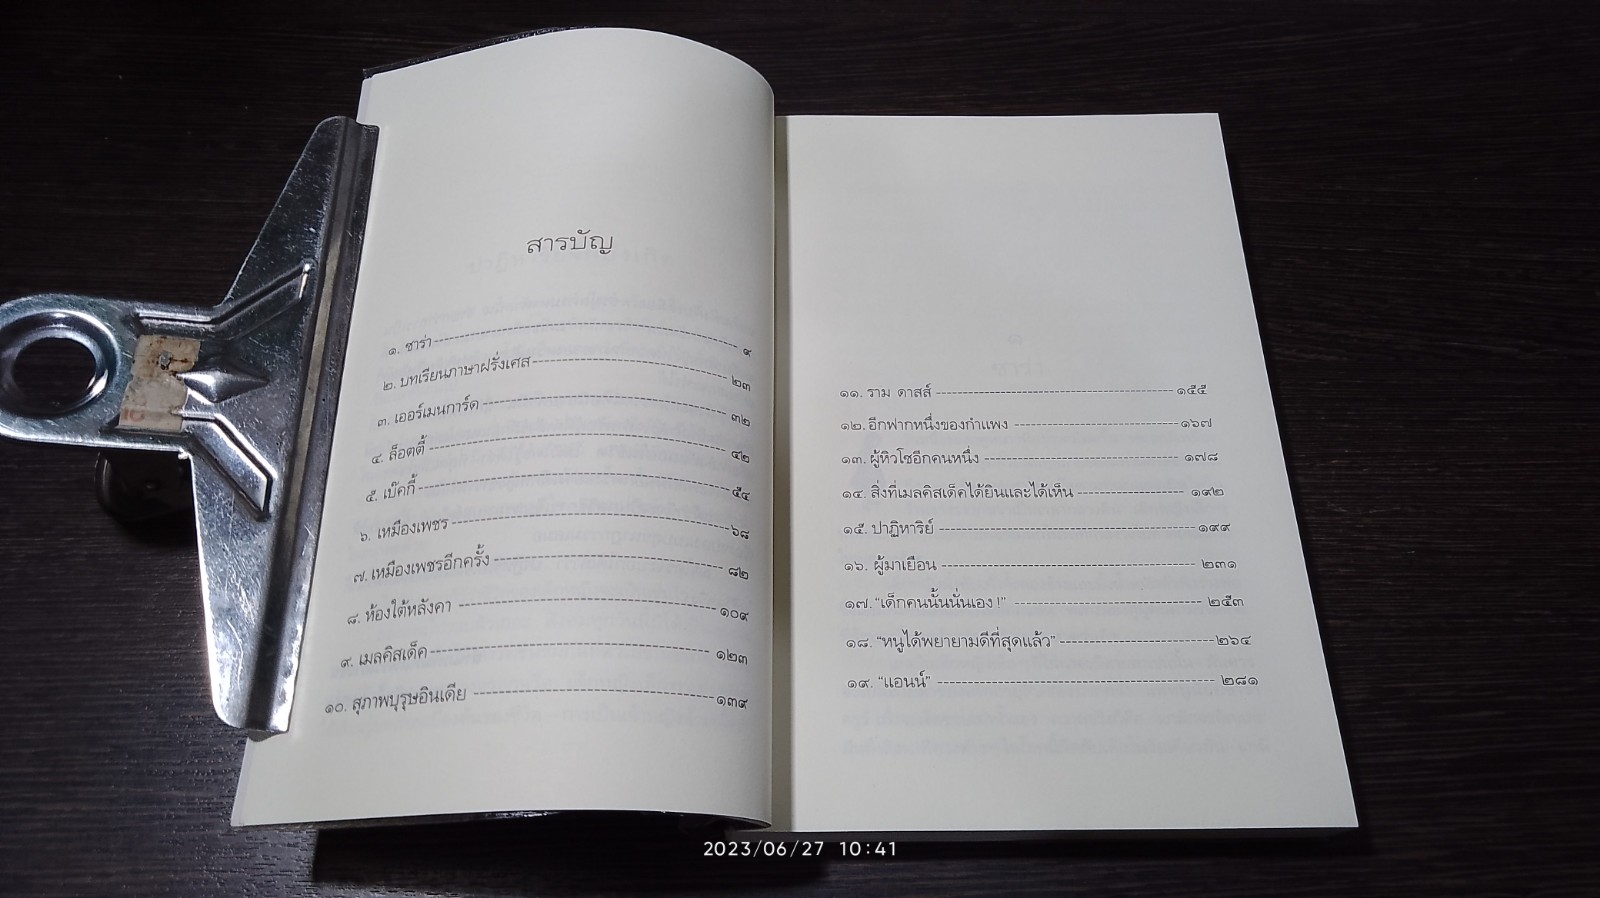 สารบัญ
๑. ซาร่า ๙
๒. บทเรียนภาษาฝรั่งเศส ๒๓
๓. เออร์เมนการ์ด ๓๒
๔. ล็อตตี้ ๔๒
๕. เบ๊คกี้ ๕๔
๖. เหมืองเพชร ๖๘
๗. เหมืองเพชรอีกครั้ง ๘๒
๘. ห้องใต้หลังคา ๑๐๙
๙. เมลคิสเด็ค ๑๒๓
๑๐. สุภาพบุรุษอินเดีย ๑๓๙
๑๑. ราม ดาสส์ ๑๕๕
๑๒. อีกฟากหนึ่งของกำแพง ๑๖๗
๑๓. ผู้หิวโซอีกคนหนึ่ง ๑๗๘
๑๔. สิ่งที่เมลคิสเด็คได้ยินและได้เห็น ๑๙๒
๑๕. ปาฏิหาริย์ ๑๙๙
๑๖. ผู้มาเยือน ๒๓๑
๑๗. “เด็กคนนั้นนั่นเอง !” ๒๕๓
๑๘. “หนูได้พยายามดีที่สุดแล้ว” ๒๖๔
๑๙. “แอนน์” ๒๘๑
2023/06/27 10:41